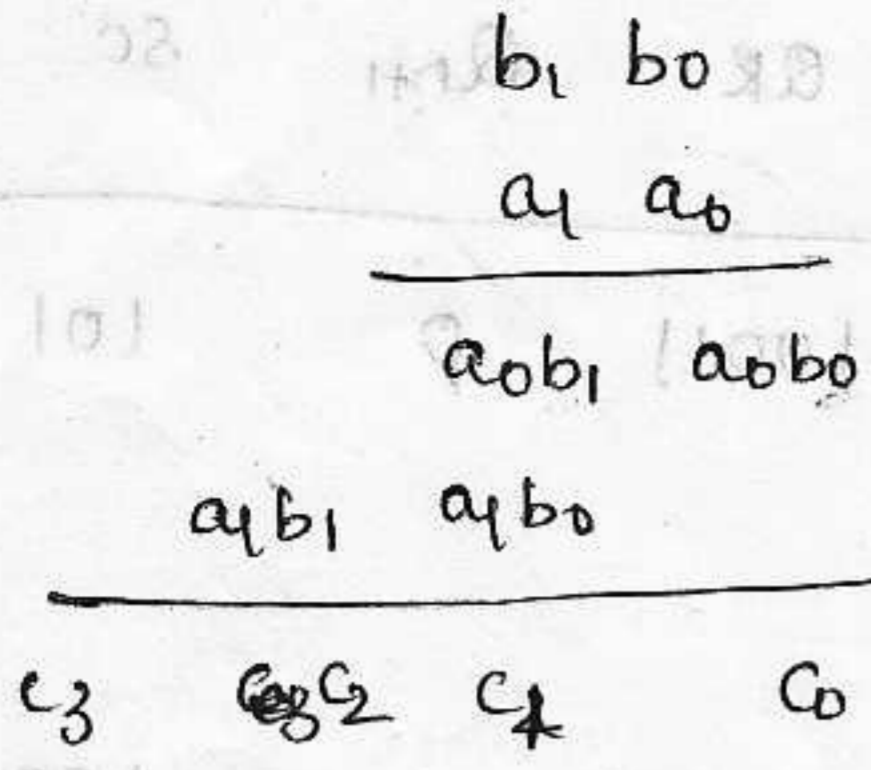 b1 b0
a1 a0
a0b1 a0b0
a1b1 a1b0
c3 c2 c1 c0